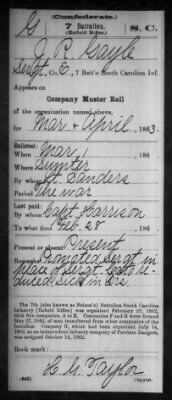 (Confederate.)
G 7 Battalion, S. C.
(Enfield Rifles).
J R Gayle
Sergt, Co. E, 7 Batt'n South Carolina Inf.
Appears on
Company Muster Roll
of the organization named above,
for Mar & April, 1863.
Enlisted:
When Mar 1, 186
Where Sumter
By whom Sanders
Period The war
Last paid:
By whom Capt Harrison
To what time Feb. 28, 186
Present or absent Present
Remarks: Promoted Sergt in
place of Sergt. re-
duced. Sick in
The 7th (also known as Nelson's) Battalion South Carolina
Infantry (Enfield Rifles) was organized February 22, 1862,
with five companies, A to E. Companies F and G were formed
May 27, 1862, of men transferred from other companies of the
battalion. Company H, which had been organized July 14,
1862, as an independent company of Partisan Rangers, was
assigned October 14, 1862.
Book mark:
H. G. Taylor
(642) Copyist.